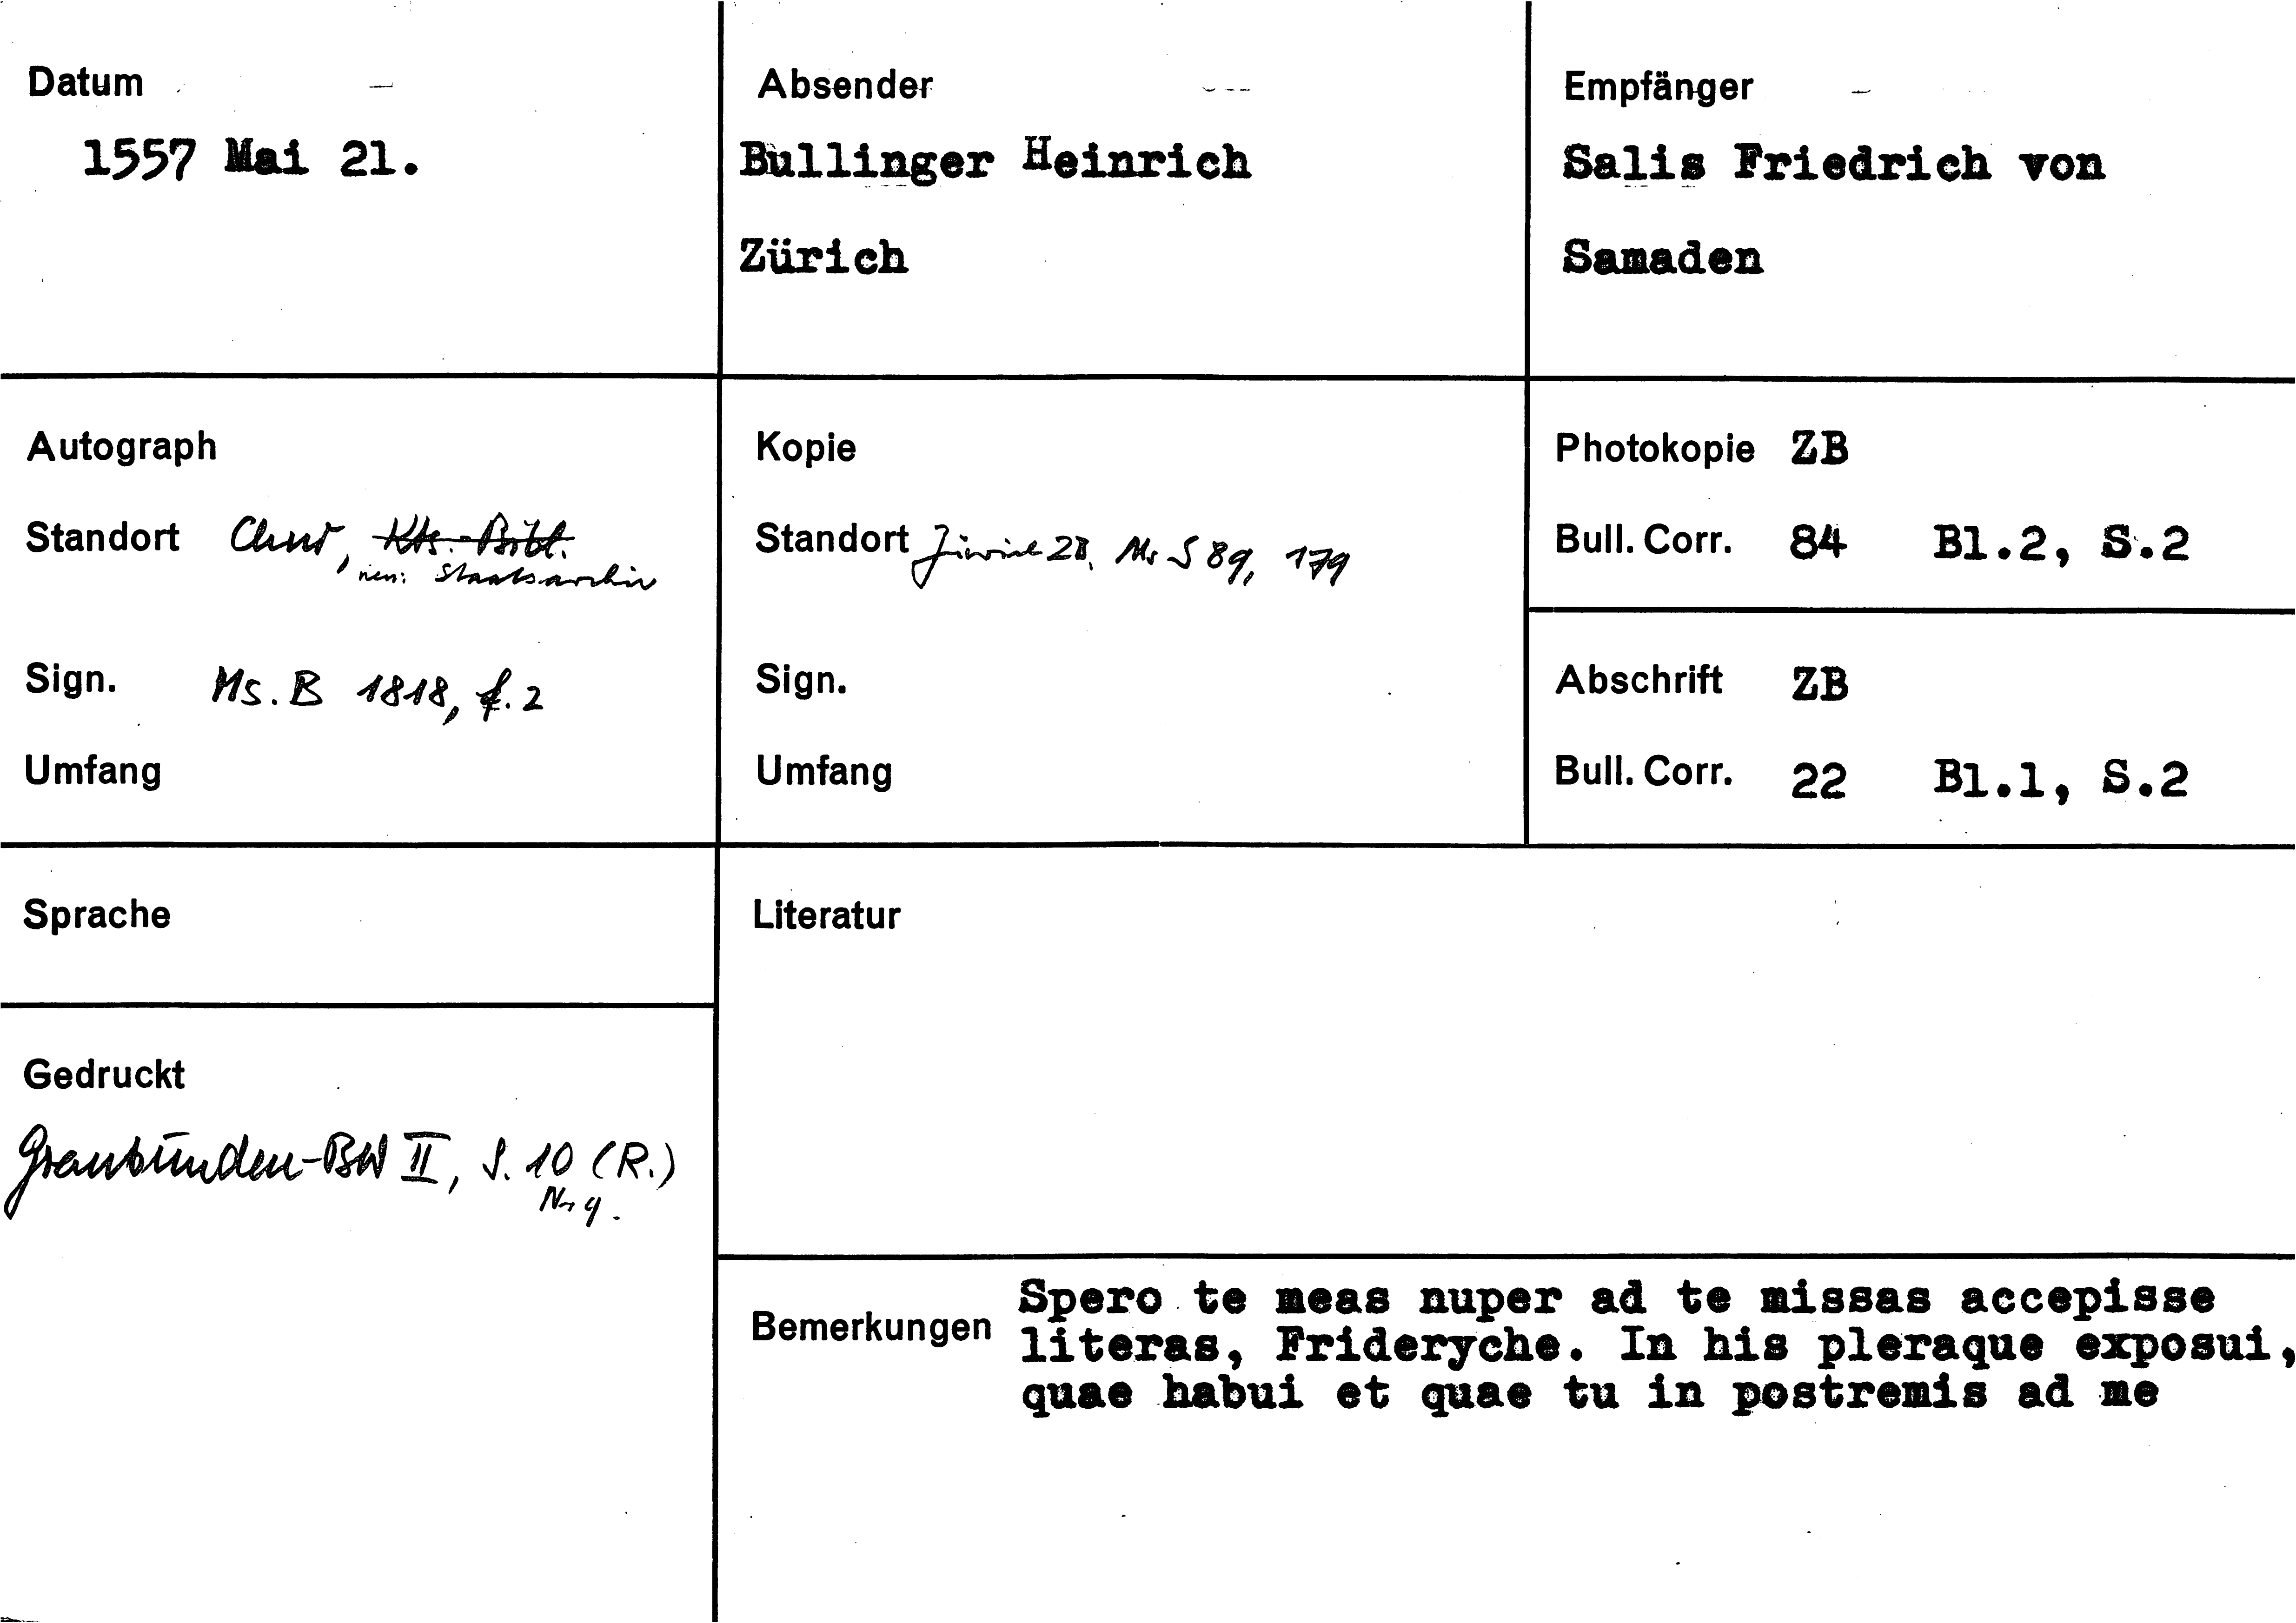 Datum
1557 Mai 21.
Absender
Bullinger Heinrich
Zürich
Empfänger
Salis Friedrich von
Samaden
Autograph
Standort Chur, Kts.-Bibl.
neu: Staatsarchiv
Sign. Ms. B 1818, f. 2
Umfang
Kopie
Standort Zürich ZB, Ms S 89, 179
Sign.
Umfang
Photokopie ZB
Bull. Corr. 84 Bl.2, S.2
Abschrift ZB
Bull. Corr. 22 Bl.1, S.2
Sprache
Literatur
Gedruckt
Graubünden-BW II, S. 10 (R.)
Nr 9.
Bemerkungen
Spero te meas nuper ad te missas accepisse
literas, Frideryche. In his pleraque exposui,
quae habui et quae tu in postremis ad me